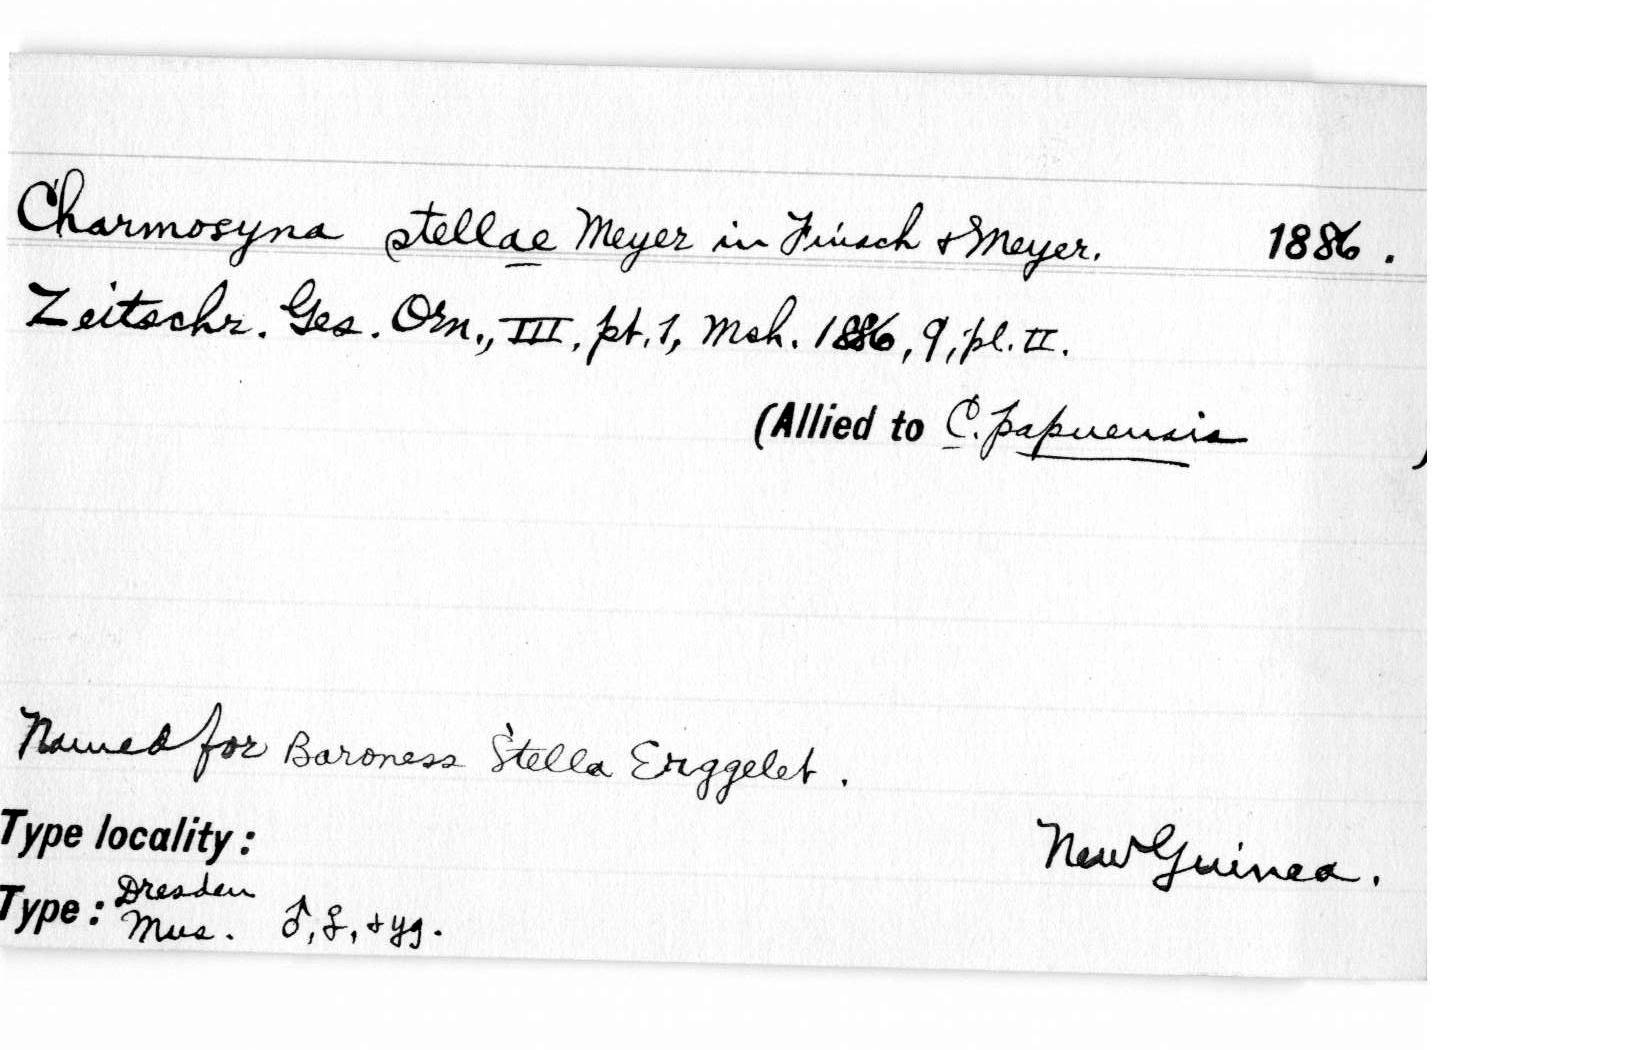 Charmosyna stellae Meyer in Finsch & Meyer. 1886.
Zeitschr. Ges. Orn., III, pt. 1, Mch. 1886, 9, pl. II.
(Allied to C. papuensis )
Named for Baroness Stella Erggelet.
Type locality: New Guinea.
Type: Dresden Mus. ♂, ♀, & yg.